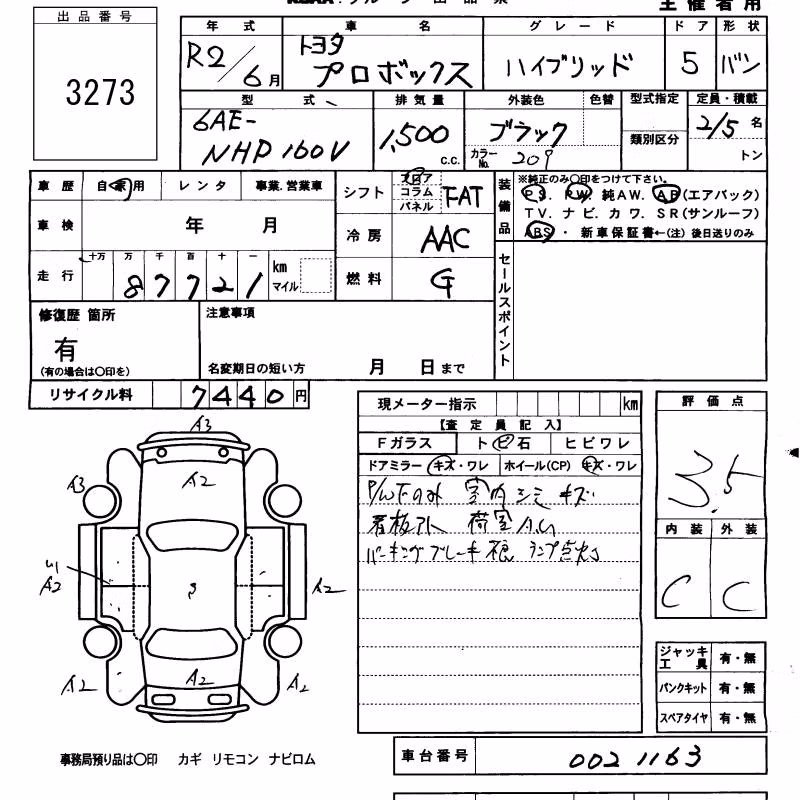 主催者用
出品番号
3273
年式 車名 グレード ドア 形状
R2/6月 トヨタ プロボックス ハイブリッド 5 バン
型式 排気量 外装色 色替 型式指定 定員・積載
6AE-NHP160V 1,500 c.c. ブラック カラーNo. 209 類別区分 2/5名 トン
車歴 自家用 レンタ 事業.営業車
シフト フロア コラム パネル FAT
装備品 ※純正のみ〇印をつけて下さい。
PS. PW. 純AW. AB(エアバック)
TV. ナビ. カワ. SR(サンルーフ)
ABS ・ 新車保証書←(注) 後日送りのみ
車検 年 月
冷房 AAC
走行 十万 万 千 百 十 一 km マイル
87721
燃料 G
セールスポイント
修復歴 箇所
有
(有の場合は〇印を)
注意事項
名変期日の短い方 月 日まで
リサイクル料 7440円
現メーター指示 km
【査定員記入】
Fガラス トビ石 ヒビワレ
ドアミラー キズ・ワレ ホイール(CP) キズ・ワレ
P/W下のみ 室内シミ キズ
看板外 荷室
パーキングブレーキ ランプ点灯
評価点
3.5
内装 外装
C C
A3
A2
A3
A2
A2
A2
A2
A2
ジャッキ工具 有・無
パンクキット 有・無
スペアタイヤ 有・無
事務局預り品は〇印 カギ リモコン ナビロム
車台番号 0021163